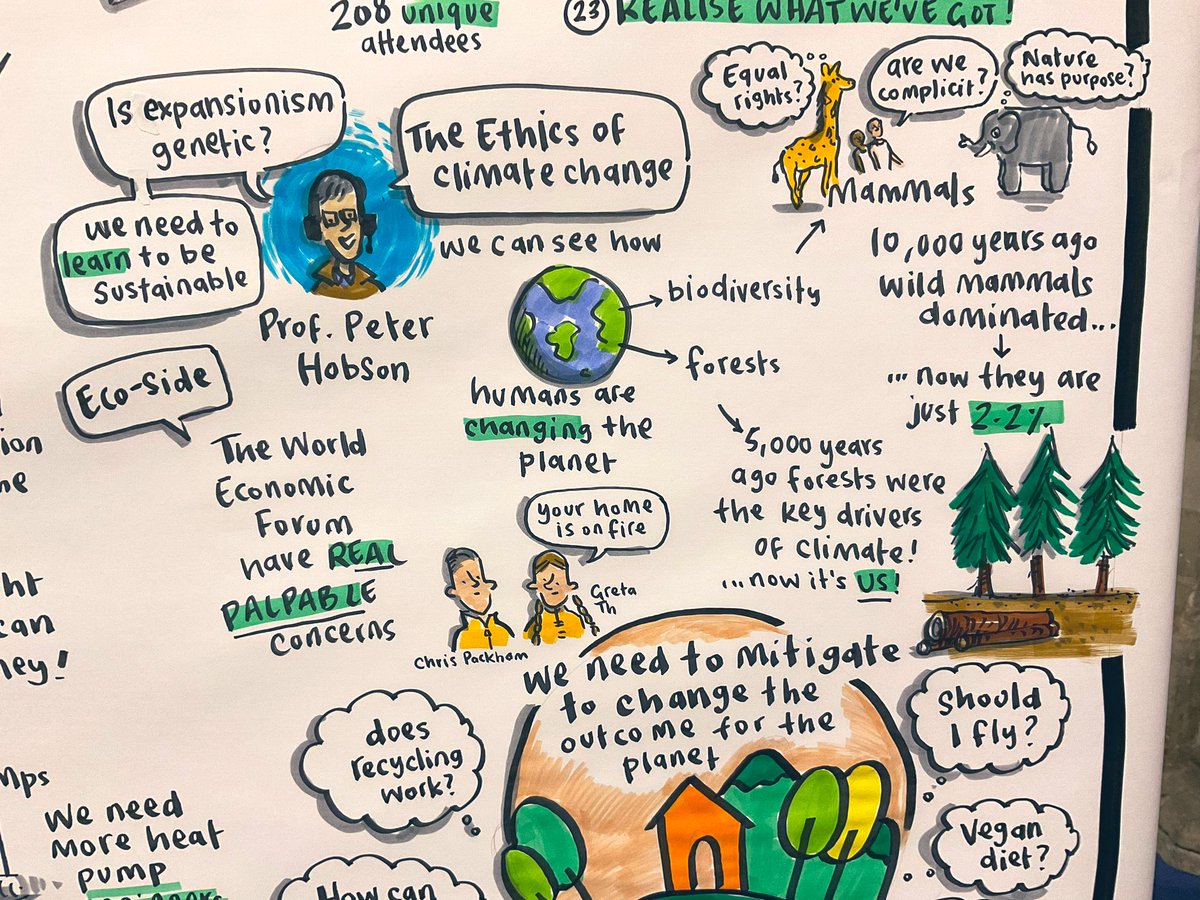 208 unique
attendees
23 REALISE WHAT WE'VE GOT!
Is expansionism
genetic?
The Ethics of
climate change
we need to
learn to be
sustainable
Prof. Peter
Hobson
Equal
rights?
are we
complicit?
Nature
has purpose?
Mammals
we can see how
biodiversity
forests
humans are
changing the
planet
10,000 years ago
wild mammals
dominated...
...now they are
just 2.2%
5,000 years
ago forests were
the key drivers
of climate!
...now it's US!
Eco-Side
The World
Economic
Forum
have REAL
PALPABLE
concerns
your home
is on fire
Chris Packham
Greta
Th
we need to Mitigate
to change the
outcome for the
planet
does
recycling
work?
Should
I fly?
Vegan
diet?
How can
can
We need
more heat
pump